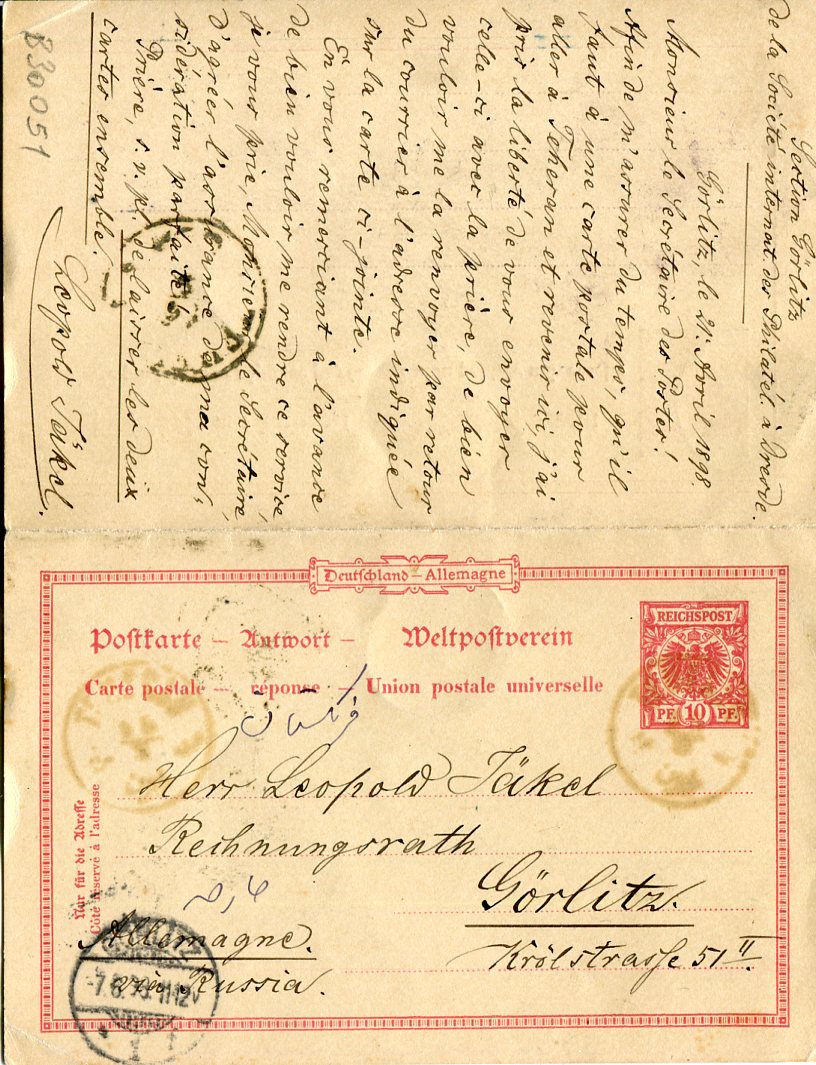 Section Görlitz
de la Société internat. des Philatél. à Dresde.
Görlitz, le 21. Avril 1898.
Monsieur le Secrétaire des Postes!
Afin de m'assurer du temps, qu'il
faut à une carte postale pour
aller à Teheran et revenir ici, j'ai
pris la liberté de vous envoyer
celle-ci avec la prière, de bien
vouloir me la renvoyer par retour
du courrier à l'adresse indiquée
sur la carte ci-jointe.
En vous remerciant à l'avance
de bien vouloir me rendre ce service,
je vous prie, Monsieur le Secrétaire,
d'agréer l'assurance de ma con-
sidération parfaite!
Prière, s. v. pl. de laisser les deux
cartes ensemble!
Leopold Täkel.
830051
Deutschland – Allemagne
Postkarte – Antwort – Weltpostverein
Carte postale – réponse – Union postale universelle
REICHSPOST
PF. 10 PF.
Nur für die Adresse
Côté réservé à l'adresse
Herr Leopold Täkel
Rechnungsrath
Görlitz.
Krölstrasse 51 II.
Allemagne.
via Russia.